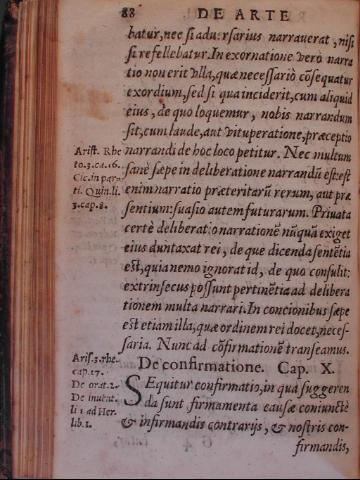 88 DE ARTE
batur, nec si adu:rsarius narrauerat, nisi
si refellebatur. In exornatione verò narra
tio non erit vlla, quæ necessariò cõsequatur
exordium, sed si qua inciderit, cum aliquid
eius, de quo loquemur, nobis narrandum
sit, cum laude, aut vituperatione, præceptio
narrandi de hoc loco petitur. Nec multum
sanè sæpe in deliberatione narrandũ est: est
enim narratio præteritarũ rerum, aut præ
sentium: suasio autem futurarum. Priuata
certè deliberatio narrationẽ nũquã exiget
eius duntaxat rei, de que dicenda sentẽtia
est, quia nemo ignorat id, de quo consulit:
extrinsecus possunt pertinẽtia ad delibera
tionem multa narrari. In concionibus sæpe
est etiam illa, quæ ordinem rei docet, neces-
saria. Nunc ad cõfirmationẽ transeamus.
De confirmatione. Cap. X.
SEquitur confirmatio, in qua suggeren
da sunt firmamenta causæ coniunctè
& infirmandis contrarijs, & nostris con-
firmandis,
Arist. Rhe
to. 3. ca. 16.
Cic. in par-
ti. Quin. li.
3. cap. 8.
Aris. 3. rhe.
cap. 17.
De orat. 2.
De inuent.
li 1 ad Her.
lib. 1.